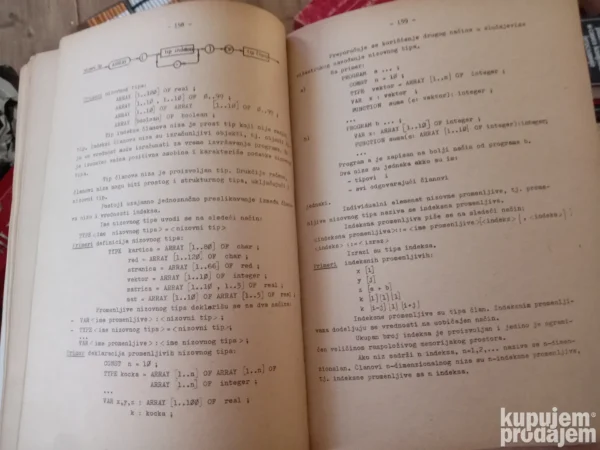 - 158 -
array
tip indeksa
tip člana
Primeri nizovnog tipa:
ARRAY [1..10] OF real ;
ARRAY [1..10 , 1..10] OF 0..99 ;
ARRAY [1..10] OF ARRAY [1..10] OF 0..99 ;
ARRAY [boolean] OF boolean ;
Tip indeksa članova niza je prost tip koji nije realni
tip. Indeksi članova niza su izračunljivi objekti, tj. objekti
čija se vrednost može izračunati za vreme izvršavanje programa.
Tip članova niza je proizvoljan tip. Drugačije rečeno,
članovi niza mogu biti prostog i strukturnog tipa, uključujući i
nizovni tip.
Postoji uzajamno jednoznačno preslikavanje između članova
niza i vrednosti indeksa.
Ime nizovnog tipa uvodi se na sledeći način:
TYPE <ime nizovnog tipa> = <nizovni tip> ;
Primeri definicija nizovnog tipa:
TYPE kartica = ARRAY [1..80] OF char ;
red = ARRAY [1..120] OF char ;
stranica = ARRAY [1..66] OF red ;
vektor = ARRAY [1..10] OF integer ;
matrica = ARRAY [1..10 , 1..5] OF real ;
mat = ARRAY [1..10] OF ARRAY [1..5] OF real ;
Promenljive nizovnog tipa deklarišu se na dva načina:
- VAR <ime promenljive> : <nizovni tip> ;
- TYPE <ime nizovnog tipa> = <nizovni tip> ;
...
VAR <ime promenljive> : <ime nizovnog tipa> ;
Primer deklaracija promenljivih nizovnog tipa:
CONST n = 10 ;
TYPE kocka = ARRAY [1..n] OF ARRAY [1..n] OF
ARRAY [1..n] OF integer ;
...
VAR x,y,z : ARRAY [1..100] OF real ;
k : kocka ;
- 159 -
Preporučuje se korišćenje drugog načina u slučajevima
višestrukog navođenja nizovnog tipa.
Na primer:
a)
PROGRAM a ... ;
CONST n = 10 ;
TYPE vektor = ARRAY [1..n] OF integer ;
VAR x: vektor ;
FUNCTION suma (a: vektor): integer ;
b)
PROGRAM b ... ;
VAR x: ARRAY [1..10] OF integer ;
FUNCTION suma(a: ARRAY [1..10] OF integer):integer;
Program a je napisan na bolji način od programa b.
Dva niza su jednaka akko su im:
- tipovi i
- svi odgovarajući članovi
jednaki.
Individualni elemenat nizovne promenljive, tj. promen-
ljive nizovnog tipa naziva se indeksna promenljiva.
Indeksna promenljiva piše se na sledeći način:
<indeksna promenljiva>::=<ime promenljive>[<indeks>{,<indeks>}]
<indeks>::=<izraz>
Izrazi su tipa indeksa.
Primeri indeksnih promenljivih:
x [i]
y [j]
z [a + b]
k [i][j][k]
k [i-j][i][i+j]
Indeksne promenljive su tipa član. Indeksnim promenlji-
vama dodeljuju se vrednosti na uobičajen način.
Ukupan broj indeksa je proizvoljan i jedino je ograni-
čen veličinom raspoloživog memorijskog prostora.
Ako niz sadrži n indeksa, n=1,2,... naziva se n-dimen-
zionalan. Članovi n-dimenzionalnog niza su n-indeksne promenljive,
tj. indeksne promenljive sa n indeksa.
kupujem
prodajem